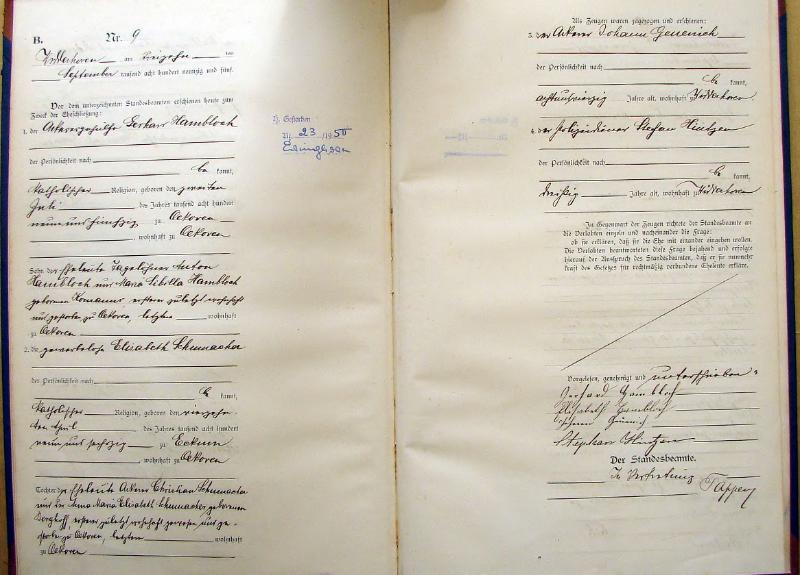 B.
Nr. 9
am dreizehn ten
September tausend acht hundert neunzig und fünf.
Vor dem unterzeichneten Standesbeamten erschienen heute zum
Zweck der Eheschließung:
1. der Ackergehülfe Gerhard Hambloch
der Persönlichkeit nach
be kannt,
katholischer Religion, geboren den zweiten
Juli des Jahres tausend acht hundert
neun und fünfzig zu Oekoven
, wohnhaft zu Oekoven
Sohn der Eheleute Tagelöhner Anton
Hambloch und Maria Sibilla Hambloch
geborenen ersterer zuletzt wohnhaft
und gestorben zu Oekoven, letztere wohnhaft
zu Oekoven
2. die gewerbelose Elisabeth Schumacher
der Persönlichkeit nach
be kannt,
katholischer Religion, geboren den vierzehn
ten April des Jahres tausend acht hundert
neun und sechszig zu Eckum
, wohnhaft zu Oekoven
Tochter der Eheleute Ackerer Christian Schumacher
und der Anna Maria Elisabeth Schumacher geborenen
ersterer zuletzt wohnhaft gewesen und ge-
storben zu Oekoven, letztere wohnhaft
zu Oekoven
Gestorben
23 1950
Als Zeugen waren zugezogen und erschienen:
3. der Ackerer Johann Geuenich
der Persönlichkeit nach
be kannt,
achtundvierzig Jahre alt, wohnhaft
4. der Polizeidiener Stefan Hintzen
der Persönlichkeit nach
be kannt,
dreißig Jahre alt, wohnhaft zu
In Gegenwart der Zeugen richtete der Standesbeamte an
die Verlobten einzeln und nacheinander die Frage:
ob sie erklären, daß sie die Ehe mit einander eingehen wollen.
Die Verlobten beantworteten diese Frage bejahend und erfolgte
hierauf der Ausspruch des Standesbeamten, daß er sie nunmehr
kraft des Gesetzes für rechtmäßig verbundene Eheleute erkläre.
Vorgelesen, genehmigt und unterschrieben
Gerhard Hambloch
Elisabeth Hambloch
Johann Geuenich
Stephan Hintzen
Der Standesbeamte.
In Vertretung